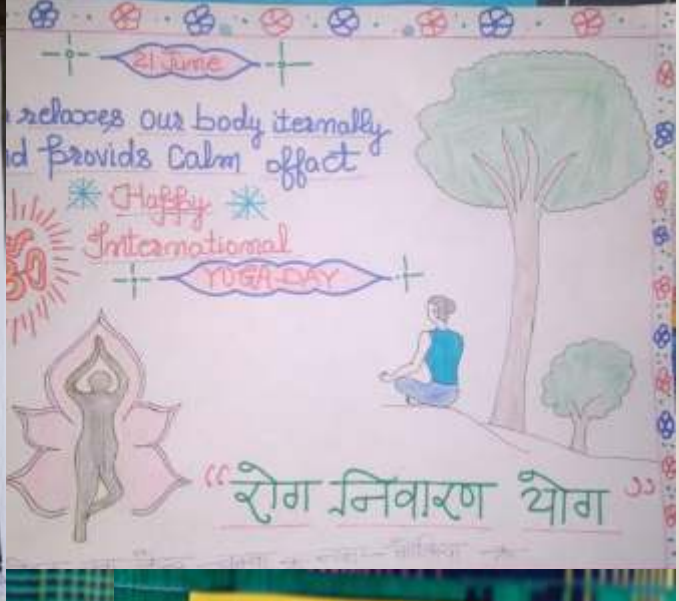 21 June
relaxes our body iternally
provids Calm offact
Happy
International
YOGA-DAY
“रोग निवारण योग”